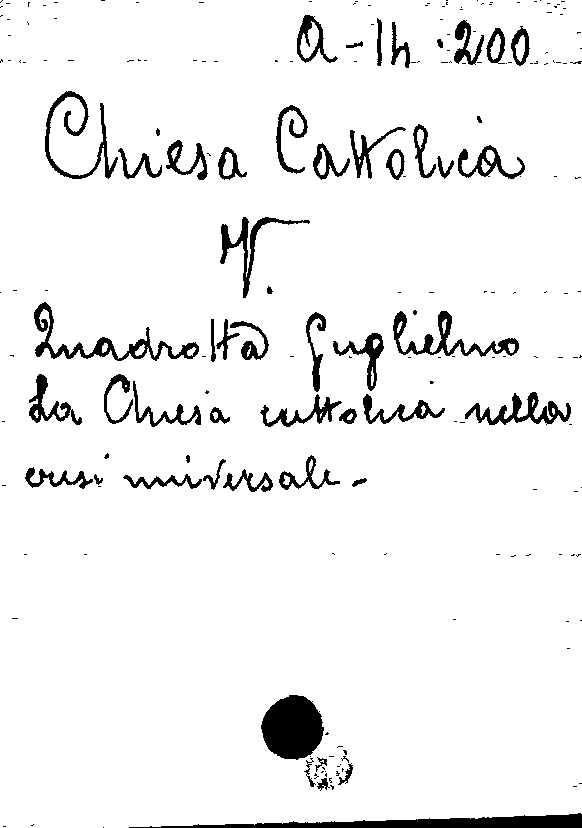 a-14.200
Chiesa Cattolica
V.
Quadrotta Guglielmo
La Chiesa cattolica nella
crisi universale-